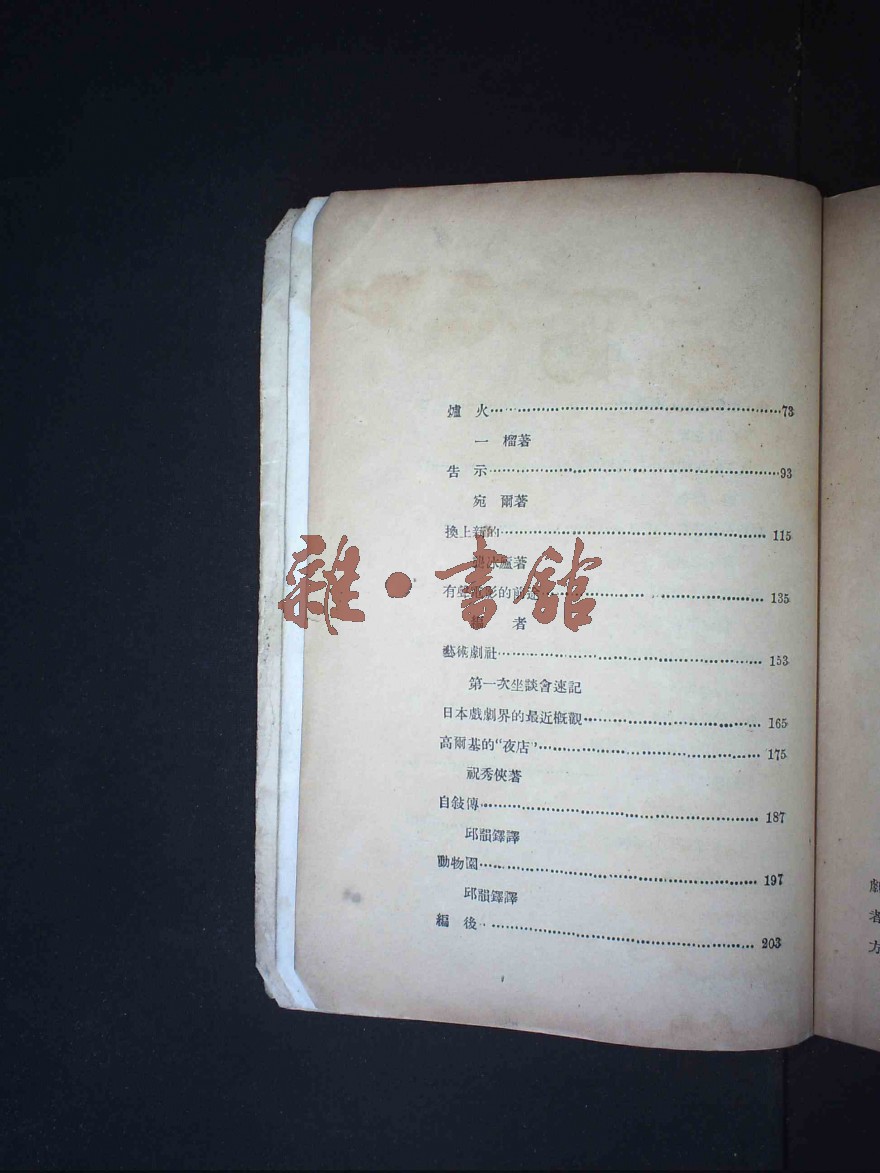 爐 火 73
一 榴著
告 示 93
宛 爾著
換上新的 115
冰廬著
有聲電影的前途 135
者
藝術劇社 153
第一次坐談會速記
日本戲劇界的最近概觀 165
高爾基的“夜店” 175
祝秀俠著
自敍傳 187
邱韻鐸譯
動物園 197
邱韻鐸譯
編 後 203
雜·書館
劇
者
方